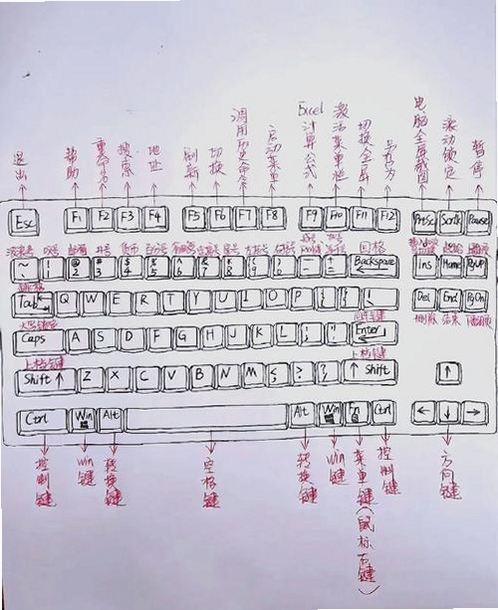 退出 帮助 重命名 搜索 地址 刷新 切换 调用历史命令 启动菜单 Excel计算公式 激活菜单栏 切换全屏 另存为 电脑全屏截图 滚动锁定 暂停
Esc F1 F2 F3 F4 F5 F6 F7 F8 F9 F10 F11 F12 Prtsc Scrlk Pause
波浪号 井号 货币 百分号 星号 左括号 右括号 回格
~ ! 1 @ 2 # 3 $ 4 % 5 ^ 6 & 7 * 8 ( 9 ) 0 - + = Backspace Ins Home PgUp
Tab Q W E R T Y U I O P { } \ Del End PgDn
删除 结束
Caps A S D F G H J K L ; " Enter
上档键 上档键
Shift Z X C V B N M < > ? Shift
Ctrl Win Alt Alt Win Fn Ctrl
控制键 win键 转换键 空格键 转换键 win键 菜单键(鼠标右键) 控制键 方向键